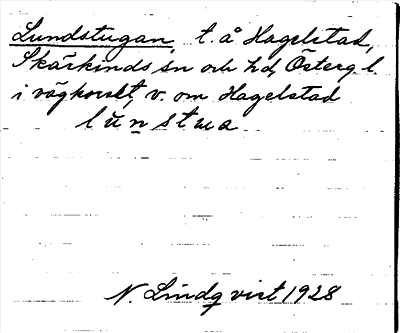 Lundstugan, t. å Hagelstad,
Skärkinds sn och hd, Östergl.
i vägkorset, v. om Hagelstad
lunstua
N. Lindqvist 1928